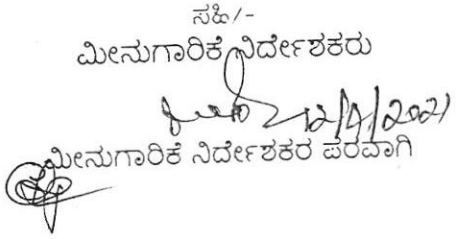 ಸಹಿ/-
ಮೀನುಗಾರಿಕೆ ನಿರ್ದೇಶಕರು
12/4/2021
ಮೀನುಗಾರಿಕೆ ನಿರ್ದೇಶಕರ ಪರವಾಗಿ